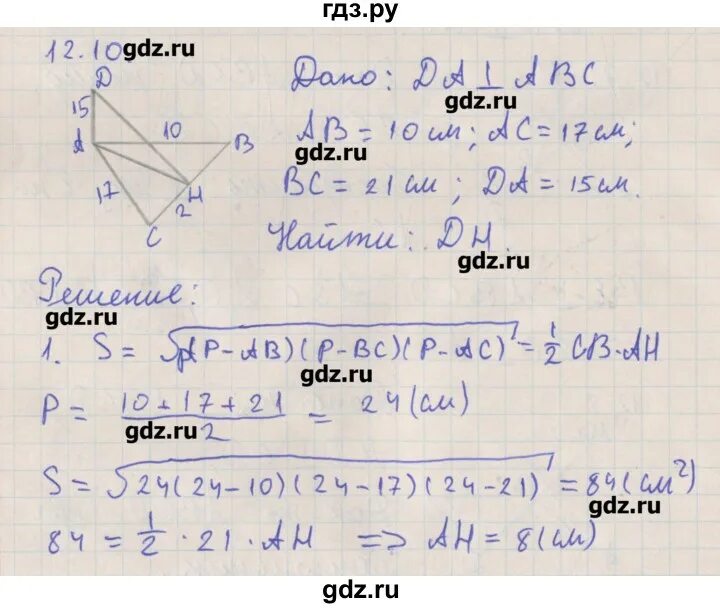 гдз.ру
12.10 gdz.ru
D
15
A
10
B
17
H
2
C
Дано: DA ⊥ ABC
gdz.ru
AB = 10 см; AC = 17 см;
gdz.ru
BC = 21 см; DA = 15 см.
Найти: DH.
gdz.ru
Решение:
gdz.ru
1. S = √p(P-AB)(P-BC)(P-AC) = 1/2 CB·AH
gdz.ru
P = (10+17+21)/2 = 24 (см)
gdz.ru
S = √24(24-10)(24-17)(24-21) = 84 (см²)
gdz.ru
84 = 1/2 · 21 · AH => AH = 8 (см)
gdz.ru